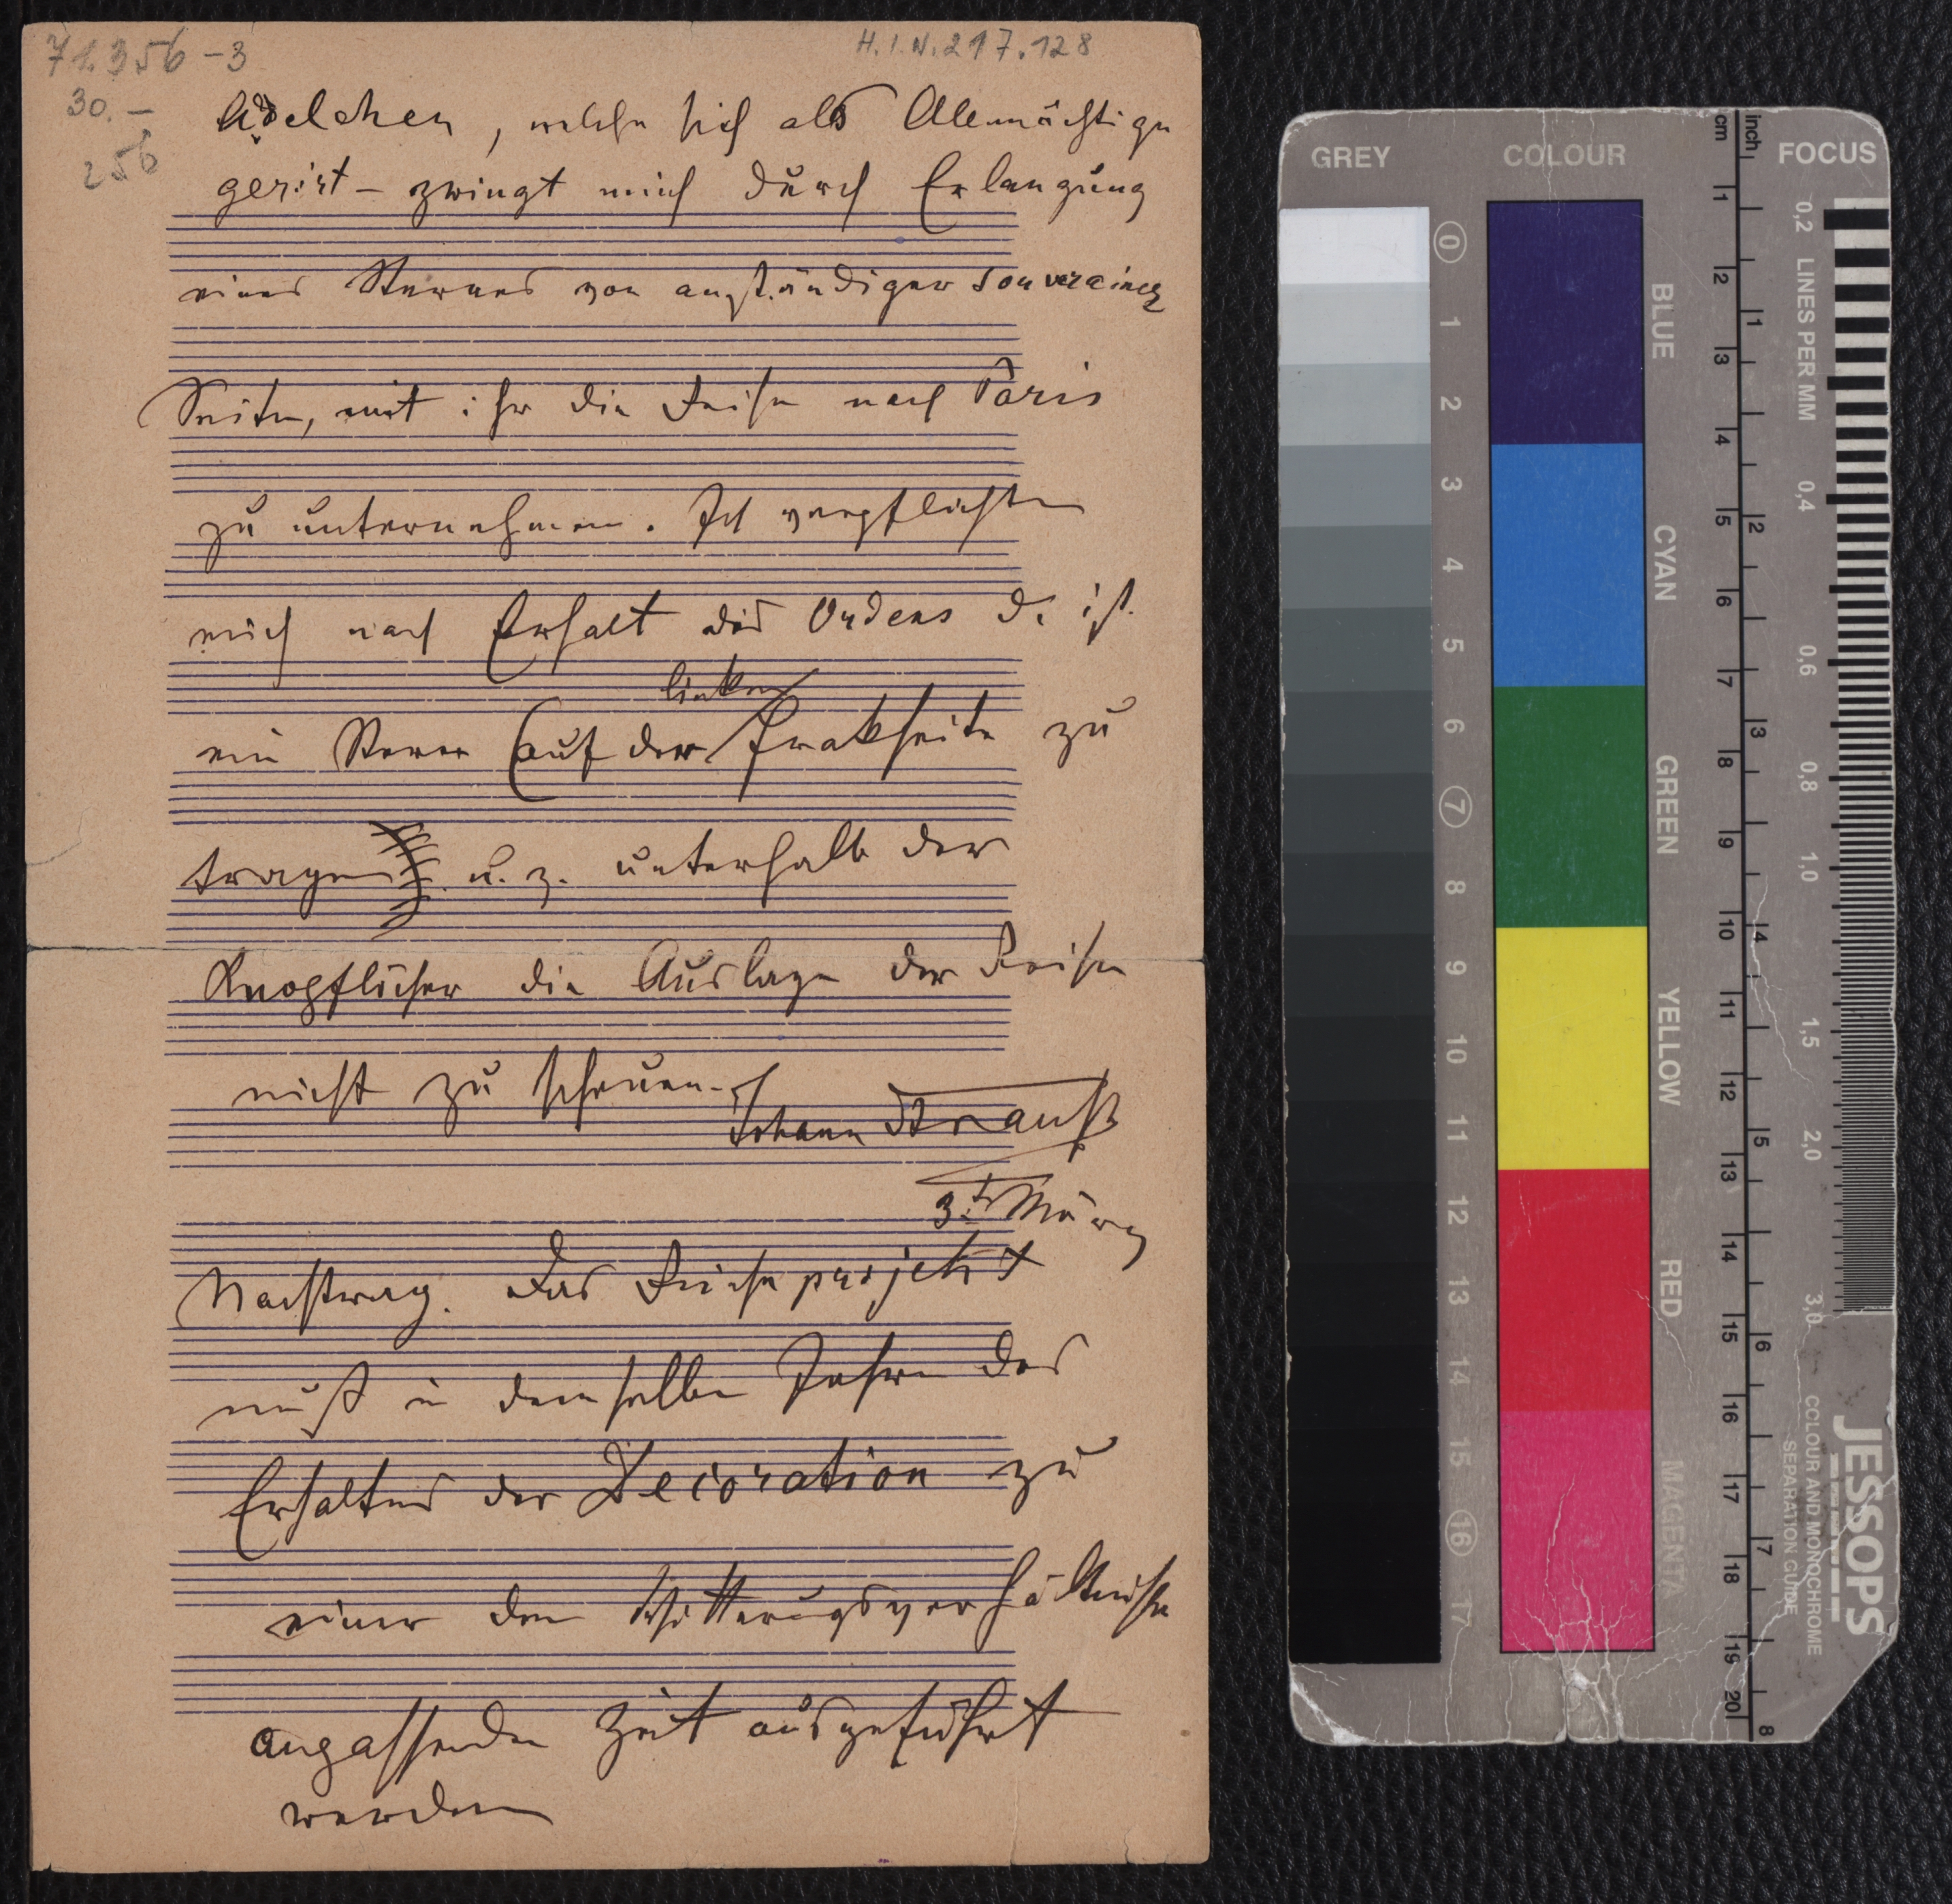 71.356-3
H.I.N.217.128
30.–
256
Adelchen, welche sich als Allmächtige
gerirt – zwingt mich durch Erlangung
eines Sternes von anständiger souverainer
Seite, mit ihr die Reise nach Paris
zu unternehmen. Ich verpflichte
mich nach Erhalt des Ordens d. ist
linken
ein Stern (auf der Frakseite zu
tragen) u. z. unterhalb der
Knopflöcher die Auslage der Reise
nicht zu scheuen.
Johann Strauß
3t März
Nachtrag. Das Reiseprojekt
muß in demselben Jahre des
Erhaltes der Decoration zu
einer den Witterungsverhältnisse
anpassenden Zeit ausgeführt
werden
GREY
COLOUR
FOCUS
0
1
2
3
4
5
6
7
8
9
10
11
12
13
14
15
16
17
BLUE
CYAN
GREEN
YELLOW
RED
MAGENTA
cm
1
2
3
4
5
6
7
8
9
10
11
12
13
14
15
16
17
18
19
20
inch
1
2
3
4
5
6
7
8
0,2 LINES PER MM
0,4
0,6
0,8
1,0
1,5
2,0
3,0
JESSOPS
COLOUR AND MONOCHROME
SEPARATION GUIDE